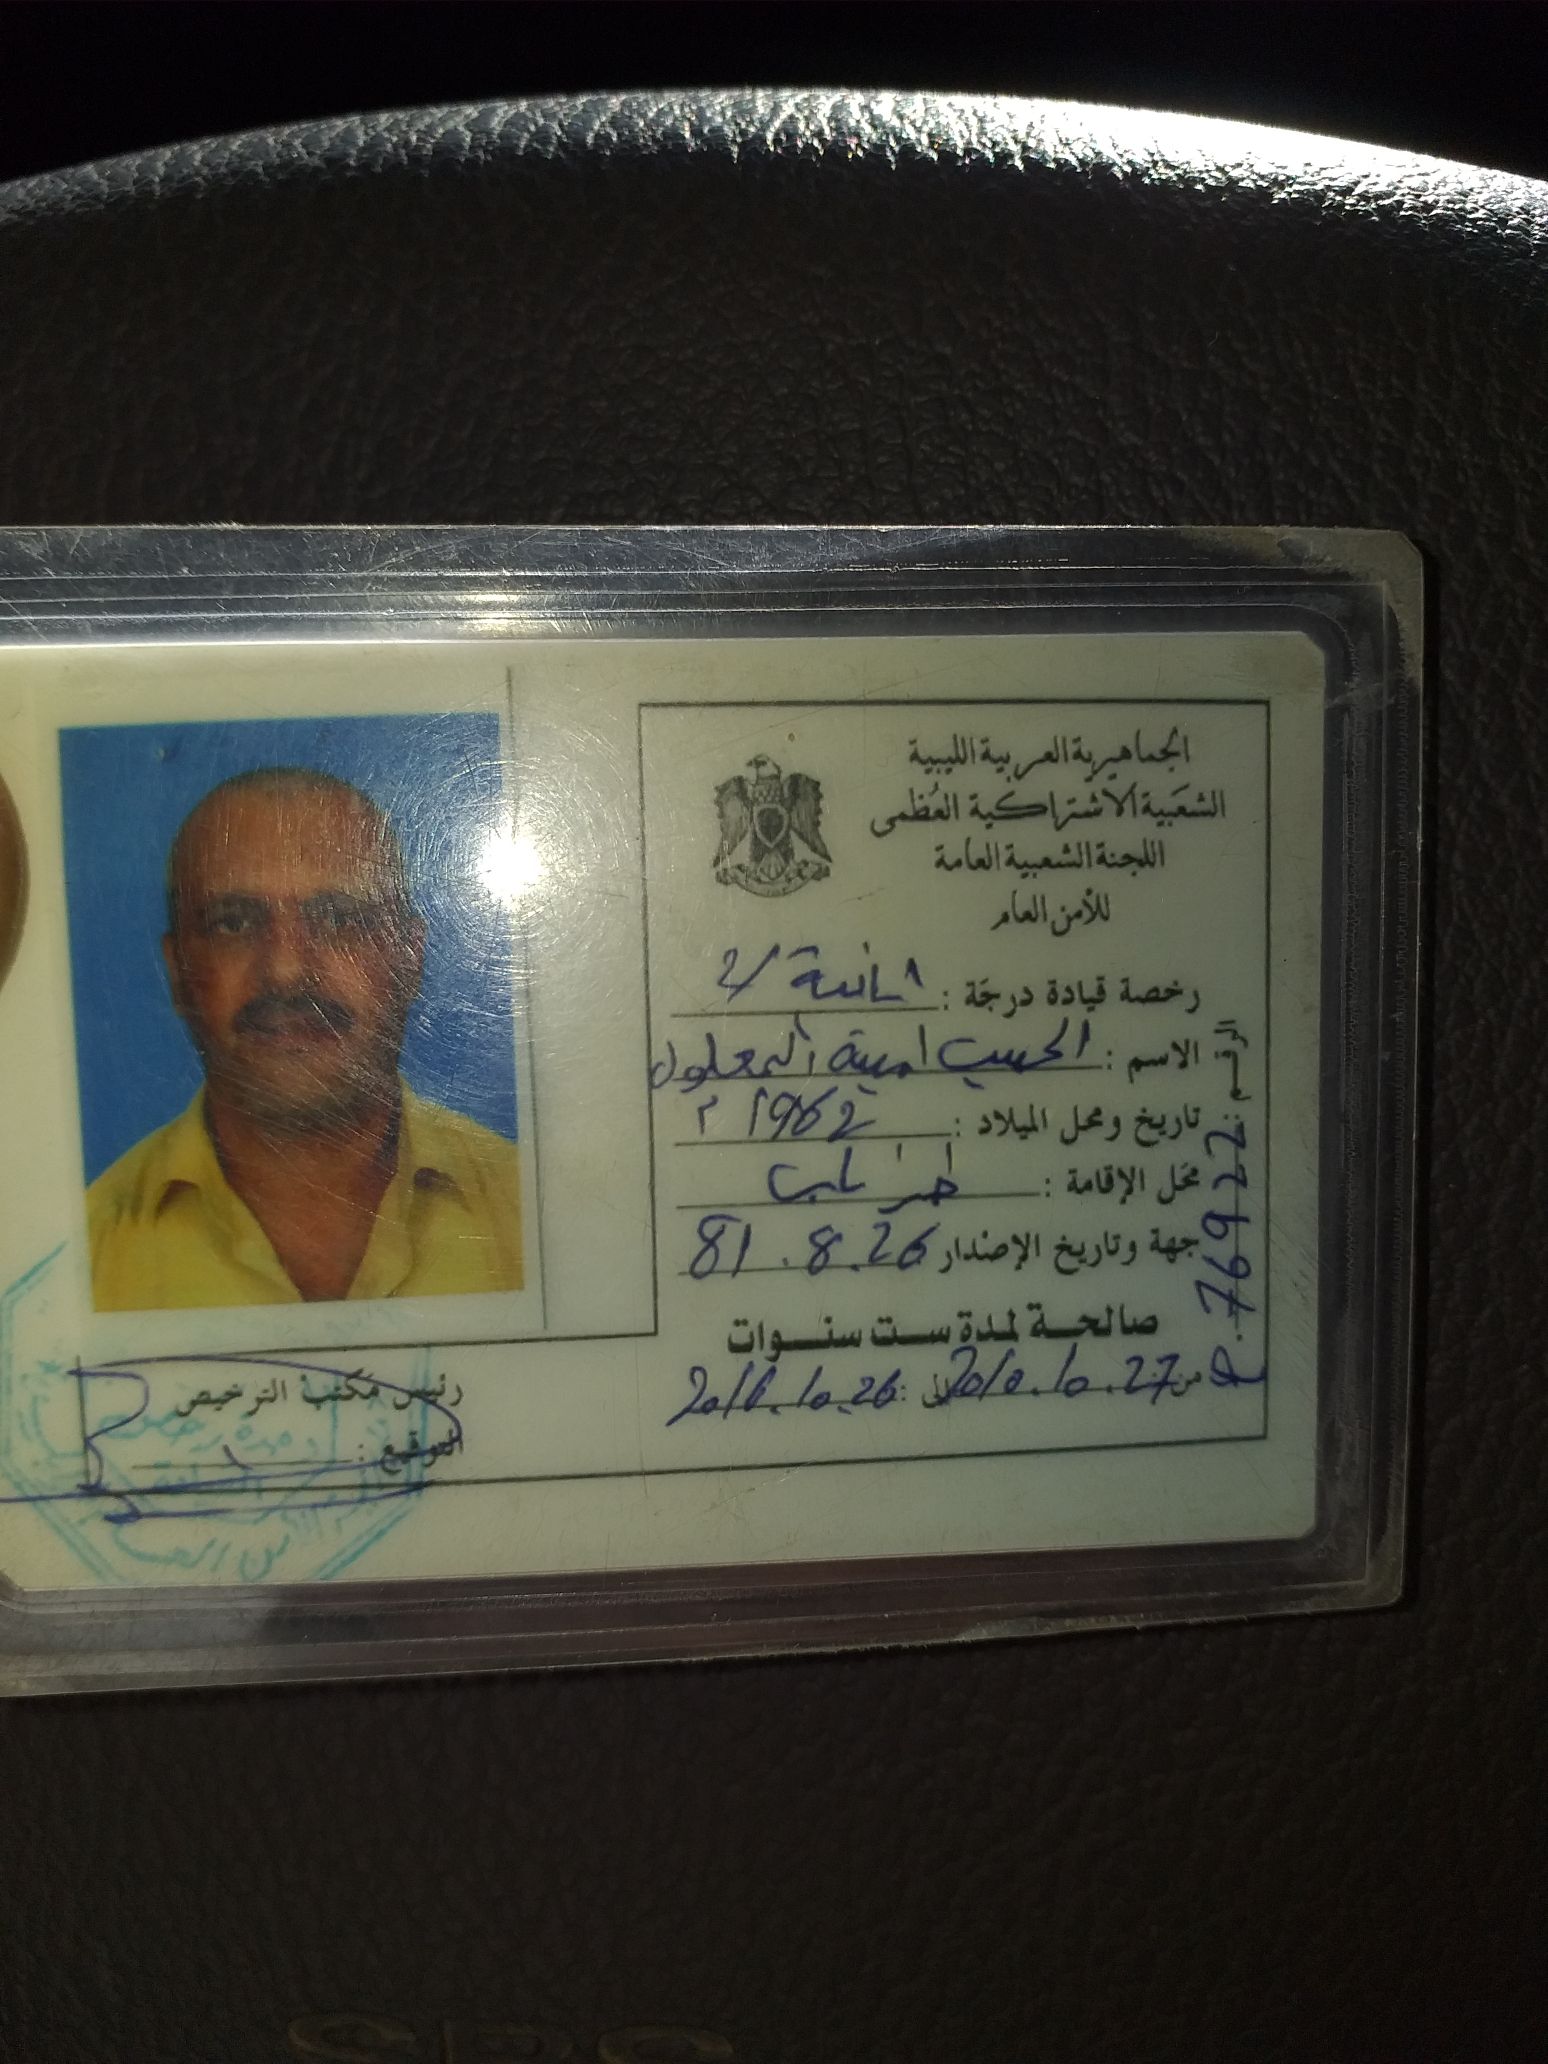 الجماهيرية العربية الليبية
الشعبية الاشتراكية العُظمى
اللجنة الشعبية العامة
للأمن العام
رخصة قيادة درجَة : ثانية /2
الاسم : الحبيب امية المعلول
تاريخ ومحل الميلاد : 1962 م
محَل الإقامة :
جهة وتاريخ الإصْدار 81.8.26
صالحة لمدة ست سنوات
من 2010.10.27 إلى : 2016.10.26
الرقم : 76922
رئيس مَكتب الترخيص
التوقيع :
SRS